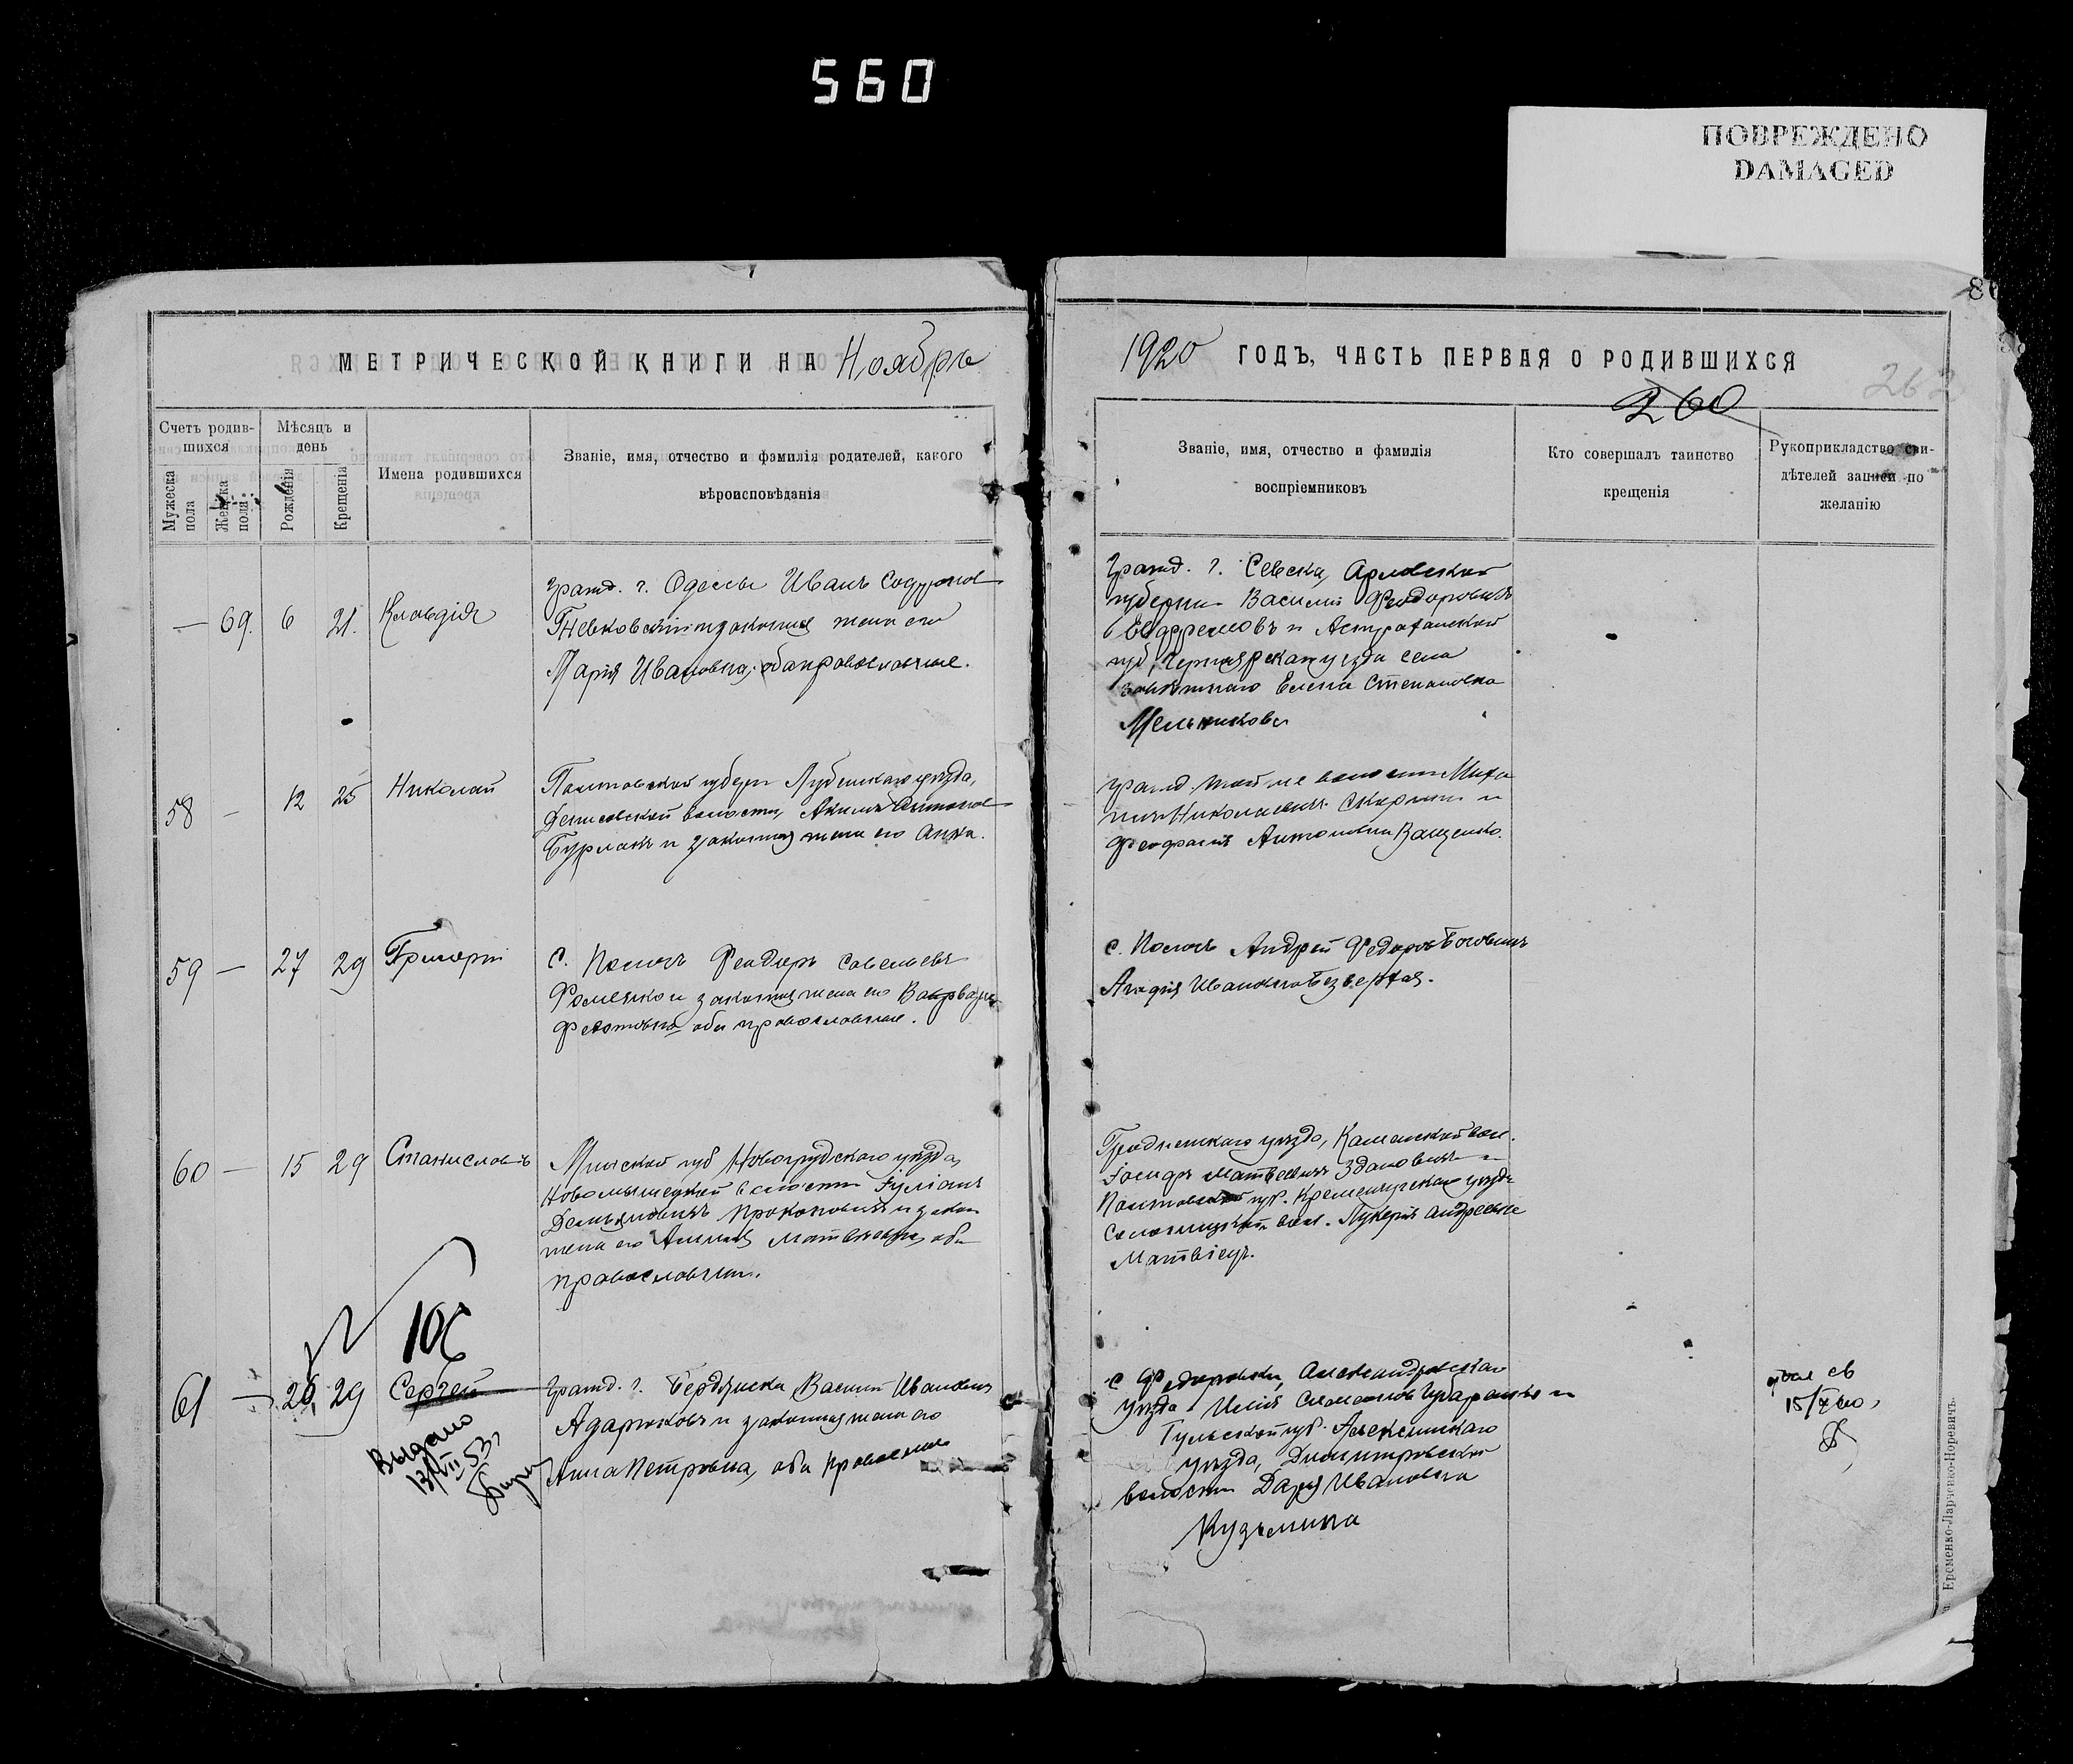 560
ПОВРЕЖДЕНО
DAMAGED
МЕТРИЧЕСКОЙ КНИГИ НА Ноябрь
1920 ГОДЪ, ЧАСТЬ ПЕРВАЯ О РОДИВШИХСЯ
260
262
Счетъ родив-
шихся
Мужеска
пола
Женска
пола
Мѣсяцъ и
день
Рожденія
Крещенія
Имена родившихся
Званіе, имя, отчество и фамилія родителей, какого
вѣроисповѣданія
Званіе, имя, отчество и фамилія
воспріемниковъ
Кто совершалъ таинство
крещенія
Рукоприкладство сви-
дѣтелей записи по
желанію
— 69. 6 21. Клавдія
гражд. г. Одессы Иванъ
законная жена его
Марія Ивановна, оба православные.
Гражд. г. Севска, Орловской
губерни Василій Феодоровичъ
Евдфремовъ и Астраханской
губ, Черноярскаго уезда села
Елена Степановна
Мельникова
58 — 12 25 Николай
Полтавской губерн Лубенскаго уезда,
Денисовской волости, Акимъ Антонов
Бурлакъ и законная жена его Анна.
гражд. той же волости Миха
илъ Николаевичъ Скорин и
Антоновна Ващенко.
59 — 27 29 Григорій
с. Пологъ Феодоръ Савельевъ
Фоменко и законная жена его Варвара
Федотовна оба православные.
с. Пологъ Андрей Федоров
Агафія Ивановна Безверхая.
60 — 15 29 Станиславъ
Минской губ Новогрудскаго уезда,
Новомышской волости Іуліанъ
Демьяновичъ Прокоповичъ и закон
жена его Матвеевна, оба
православны.
Гродненскаго уезда, Каменской вол.
Іосифъ Матвеевичъ Здановичъ и
Полтавской губ. Кременчугскаго уезда
вол. Лукерія Андреевна
Матвіец.
106
61 — 26, 29 Сергей
Выдано
13/VII 53,
гражд. г. Бердянска Василій Ивановъ
Адарюковъ и законная жена его
Анна Петровна, оба православные
с Федоровки, Александровскаго
уезда Илія Семенов и
Тульской губ. Алексинскаго
уезда, Димитровской
волости Дарія Ивановна
Кузьмина
св
Еременко-Ларченко-Норевичъ.